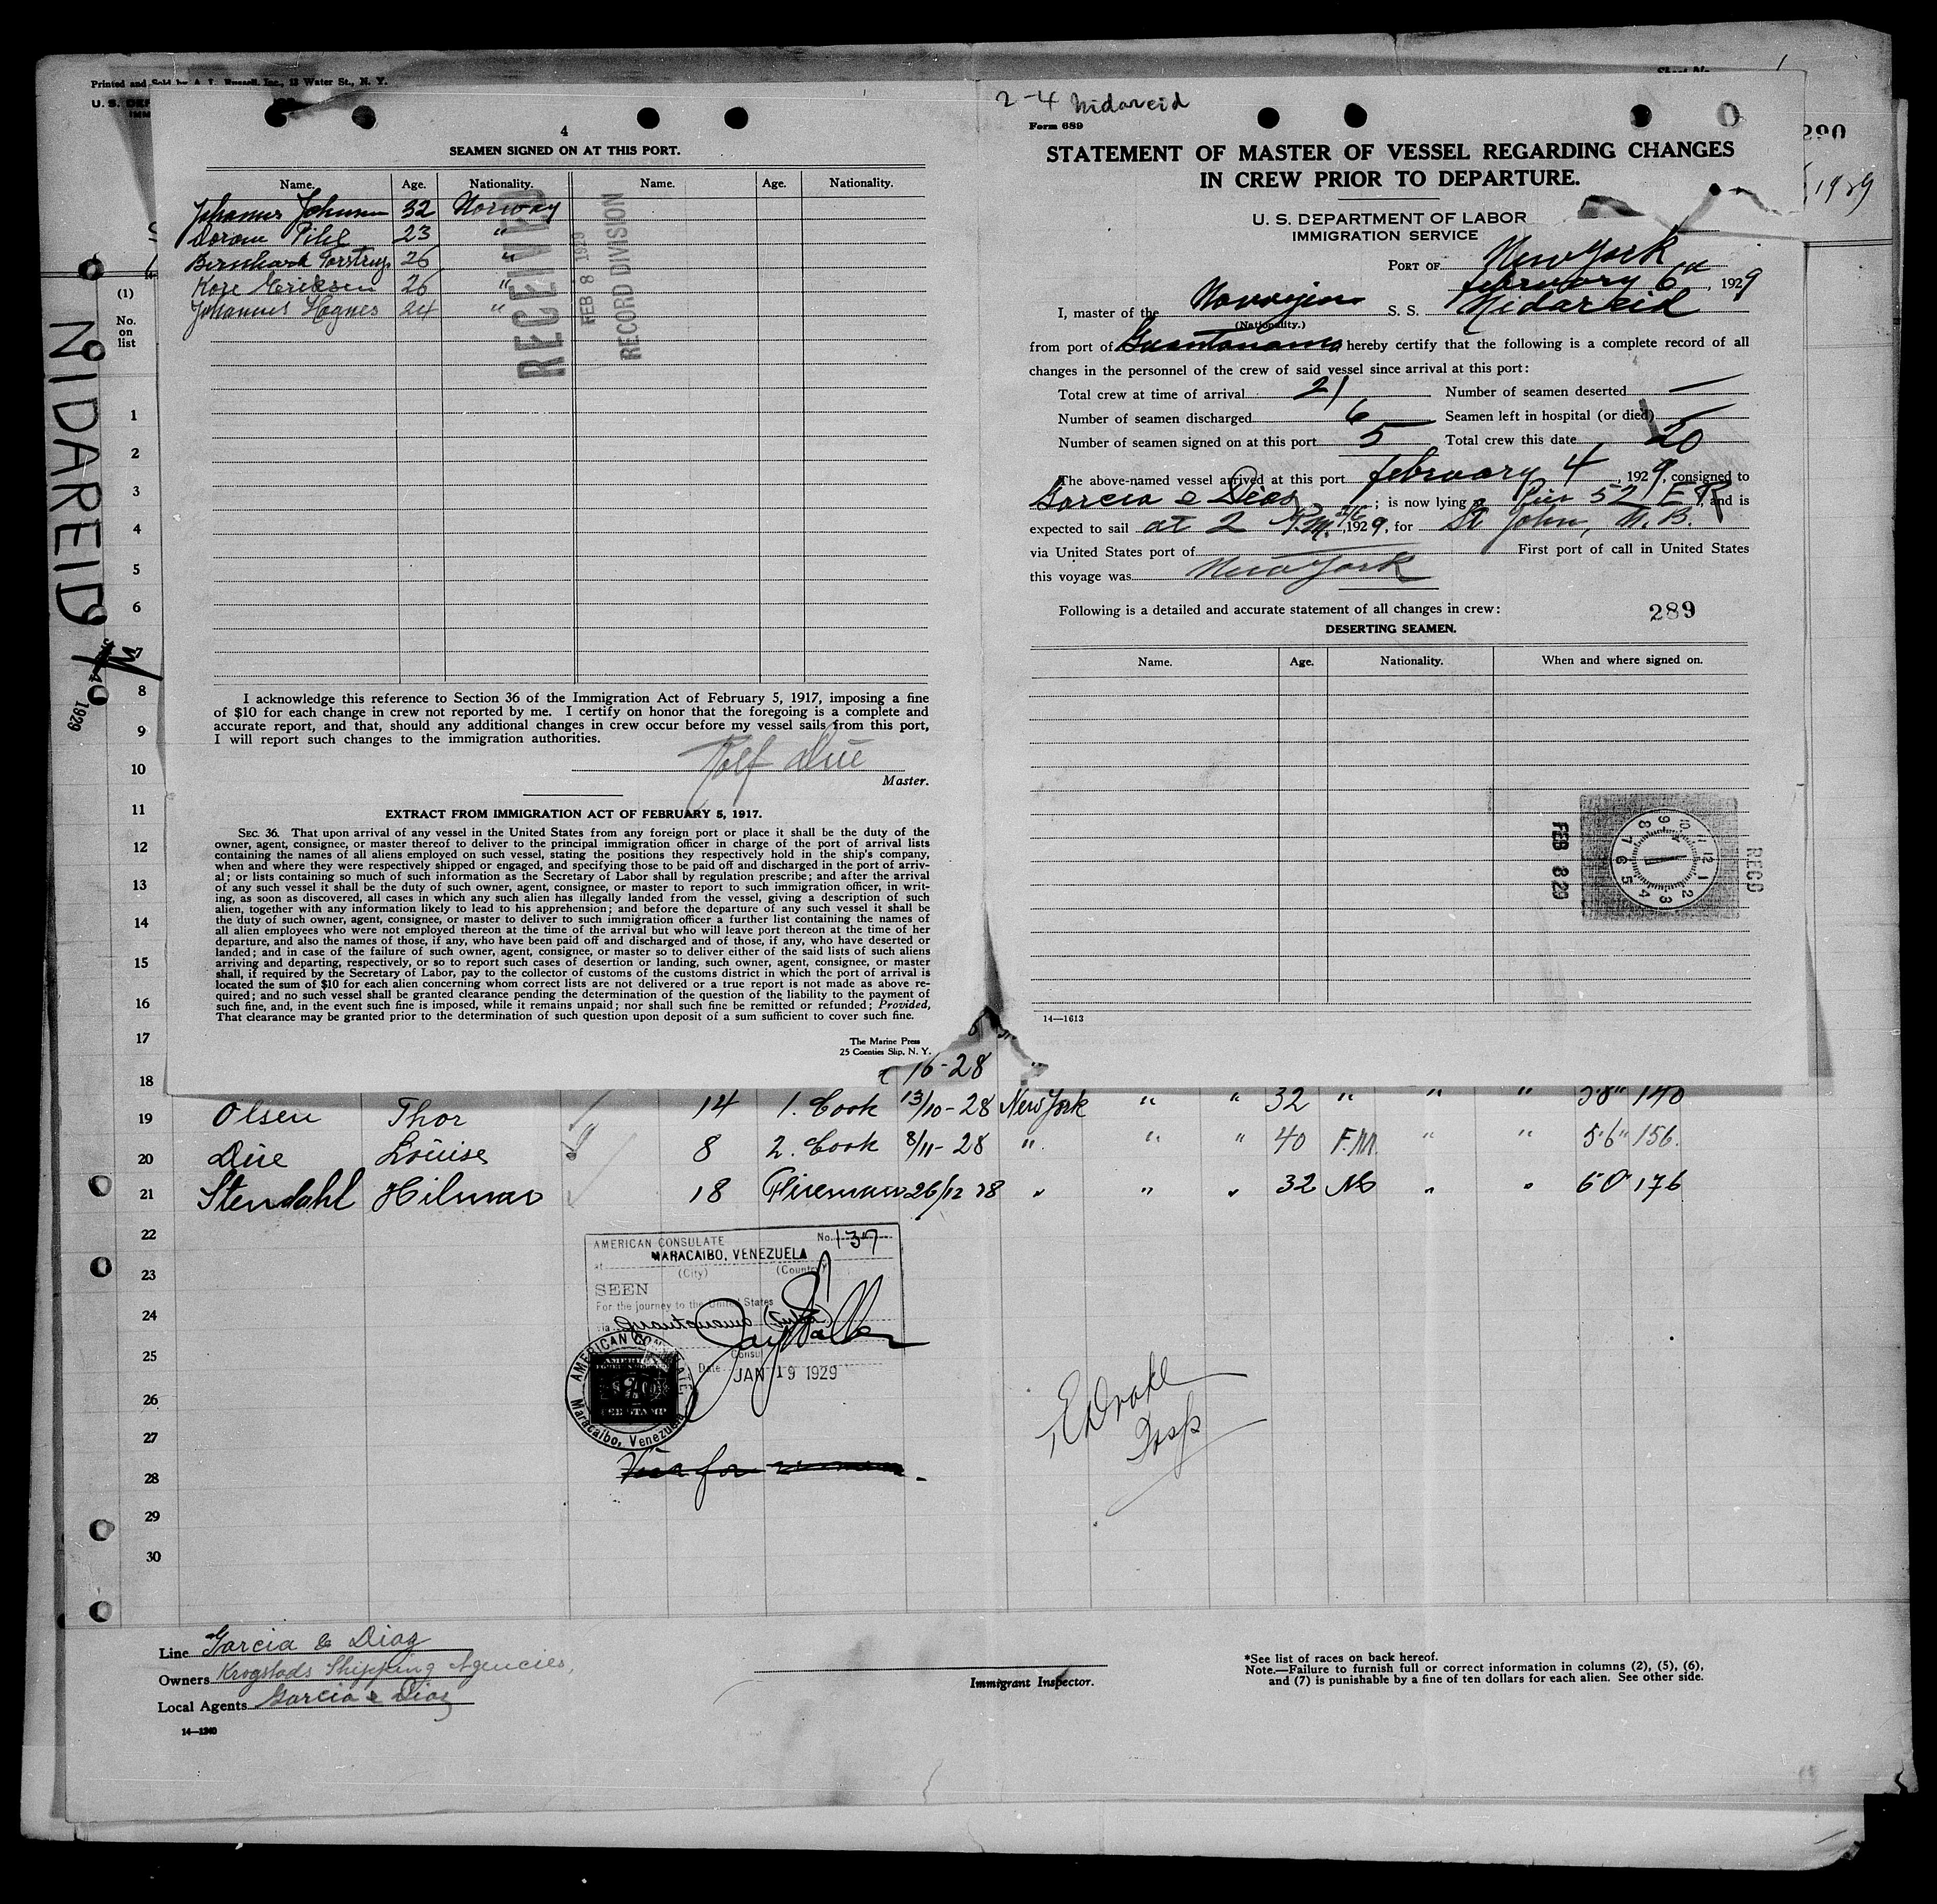 Printed and Sold by A. L. Russell, Inc., 13 Water St., N. Y.
U. S. DEP
IMM
Sheet No.
290
1929
(1)
No.
on
list
NIDAREID
1929
4
SEAMEN SIGNED ON AT THIS PORT.
Name. Age. Nationality. Name. Age. Nationality.
Johannes Johnsen 32 Norway
Pihl 23 "
Bernhard 26 "
Kore Eriksen 26 "
Johannes Hognes 24 "
RECEIVED
FEB 8 1929
RECORD DIVISION
I acknowledge this reference to Section 36 of the Immigration Act of February 5, 1917, imposing a fine
of $10 for each change in crew not reported by me. I certify on honor that the foregoing is a complete and
accurate report, and that, should any additional changes in crew occur before my vessel sails from this port,
I will report such changes to the immigration authorities.
Rolf Düe
Master.
EXTRACT FROM IMMIGRATION ACT OF FEBRUARY 5, 1917.
SEC. 36. That upon arrival of any vessel in the United States from any foreign port or place it shall be the duty of the
owner, agent, consignee, or master thereof to deliver to the principal immigration officer in charge of the port of arrival lists
containing the names of all aliens employed on such vessel, stating the positions they respectively hold in the ship's company,
when and where they were respectively shipped or engaged, and specifying those to be paid off and discharged in the port of arriv-
al; or lists containing so much of such information as the Secretary of Labor shall by regulation prescribe; and after the arrival
of any such vessel it shall be the duty of such owner, agent, consignee, or master to report to such immigration officer, in writ-
ing, as soon as discovered, all cases in which any such alien has illegally landed from the vessel, giving a description of such
alien, together with any information likely to lead to his apprehension; and before the departure of any such vessel it shall be
the duty of such owner, agent, consignee, or master to deliver to such immigration officer a further list containing the names of
all alien employees who were not employed thereon at the time of the arrival but who will leave port thereon at the time of her
departure, and also the names of those, if any, who have been paid off and discharged and of those, if any, who have deserted or
landed; and in case of the failure of such owner, agent, consignee, or master so to deliver either of the said lists of such aliens
arriving and departing, respectively, or so to report such cases of desertion or landing, such owner, agent, consignee, or master
shall, if required by the Secretary of Labor, pay to the collector of customs of the customs district in which the port of arrival is
located the sum of $10 for each alien concerning whom correct lists are not delivered or a true report is not made as above re-
quired; and no such vessel shall be granted clearance pending the determination of the question of the liability to the payment of
such fine, and, in the event such fine is imposed, while it remains unpaid; nor shall such fine be remitted or refunded; Provided,
That clearance may be granted prior to the determination of such question upon deposit of a sum sufficient to cover such fine.
The Marine Press
25 Coenties Slip, N. Y.
2-4 Nidareid
Form 689
STATEMENT OF MASTER OF VESSEL REGARDING CHANGES
IN CREW PRIOR TO DEPARTURE.
U. S. DEPARTMENT OF LABOR
IMMIGRATION SERVICE
PORT OF New York
February 6th, 1929
I, master of the Norwegian S. S. Nidareid
(Nationality.)
from port of Guantanamo hereby certify that the following is a complete record of all
changes in the personnel of the crew of said vessel since arrival at this port:
Total crew at time of arrival 21 Number of seamen deserted —
Number of seamen discharged 6 Seamen left in hospital (or died) —
Number of seamen signed on at this port 5 Total crew this date 20
The above-named vessel arrived at this port February 4, 1929, consigned to
Garcia & Dias; is now lying Pier 52 E R, and is
expected to sail at 2 P.M. 1929, for St John, N. B.
via United States port of First port of call in United States
this voyage was New York
Following is a detailed and accurate statement of all changes in crew:
289
DESERTING SEAMEN.
Name. Age. Nationality. When and where signed on.
RECD
FEB 8 29
12 1 2 3 4 5 6 7 8 9 10 11
14—1613
1
2
3
4
5
6
7
8
9
10
11
12
13
14
15
16
17
18 16-28
19 Olsen Thor 14 1. Cook 13/10-28 New York " " 32 " " " 5'8" 140
20 Düe Loüise 8 2. Cook 8/11-28 " " " 40 F.M. " " 5'6" 156
21 Stendahl Hilmar 18 Fireman 26/12 28 " " " 32 " " 6'0" 176
22
23
24
25
26
27
28
29
30
AMERICAN CONSULATE No. 137
at MARACAIBO, VENEZUELA
(City) (Country)
SEEN
For the journey to the United States
via Guantanamo (Cuba)
Consul
Date JAN 19 1929
AMERICAN CONSULATE
Maracaibo, Venezuela
FEE STAMP
Visa for
E Drake
Line Garcia & Diaz
Owners Krogstads Shipping Agencies,
Local Agents Garcia & Diaz
14—1240
Immigrant Inspector.
*See list of races on back hereof.
Note.—Failure to furnish full or correct information in columns (2), (5), (6),
and (7) is punishable by a fine of ten dollars for each alien. See other side.